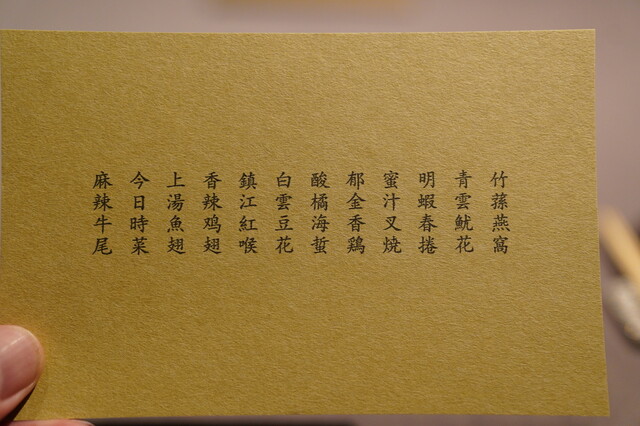 竹蓀燕窩
青雲魷花
明蝦春捲
蜜汁叉焼
郁金香鶏
酸橘海蜇
白雲豆花
鎮江紅喉
香辣鸡翅
上湯魚翅
今日時菜
麻辣牛尾